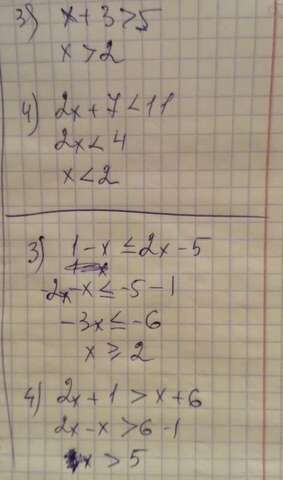 3) x + 3 > 5
x > 2
4) 2x + 7 < 11
2x < 4
x < 2
3) 1 - x ≤ 2x - 5
-2x - x ≤ -5 - 1
-3x ≤ -6
x ≥ 2
4) 2x + 1 > x + 6
2x - x > 6 - 1
x > 5